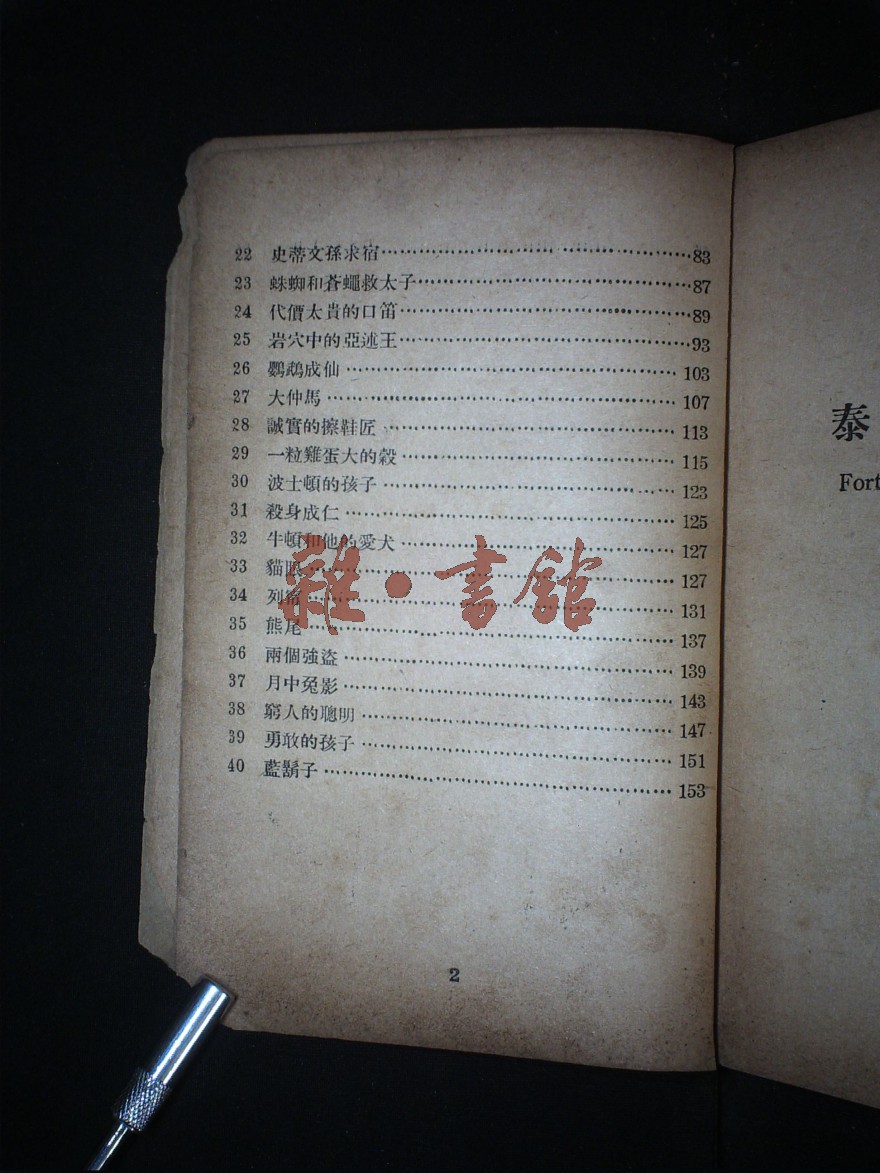 22 史蒂文孫求宿 83
23 蛛蜘和蒼蠅救太子 87
24 代價太貴的口笛 89
25 岩穴中的亞述王 93
26 鸚鵡成仙 103
27 大仲馬 107
28 誠實的擦鞋匠 113
29 一粒雞蛋大的穀 115
30 波士頓的孩子 123
31 殺身成仁 125
32 牛頓和他的愛犬 127
33 貓眼 127
34 列 131
35 熊尾 137
36 兩個強盜 139
37 月中兔影 143
38 窮人的聰明 147
39 勇敢的孩子 151
40 藍鬍子 153
2
雜·書館
泰
Fort